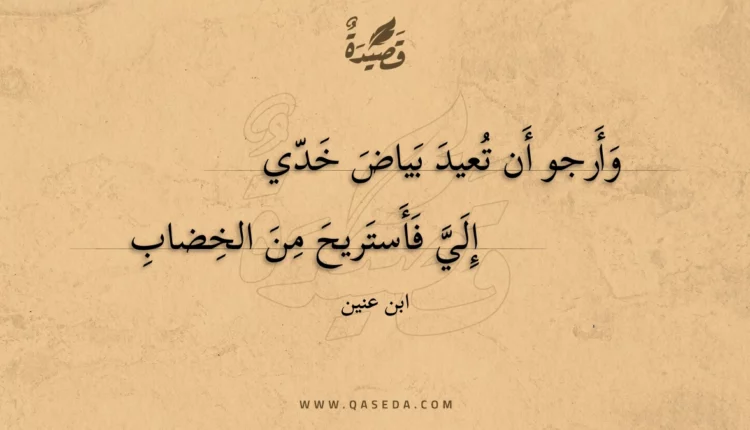 قَصِيْدَةٌ
وَأَرجو أَن تُعيدَ بَياضَ خَدّي
إِلَيَّ فَأَستَريحَ مِنَ الخِضابِ
ابن عنين
WWW.QASEDA.COM